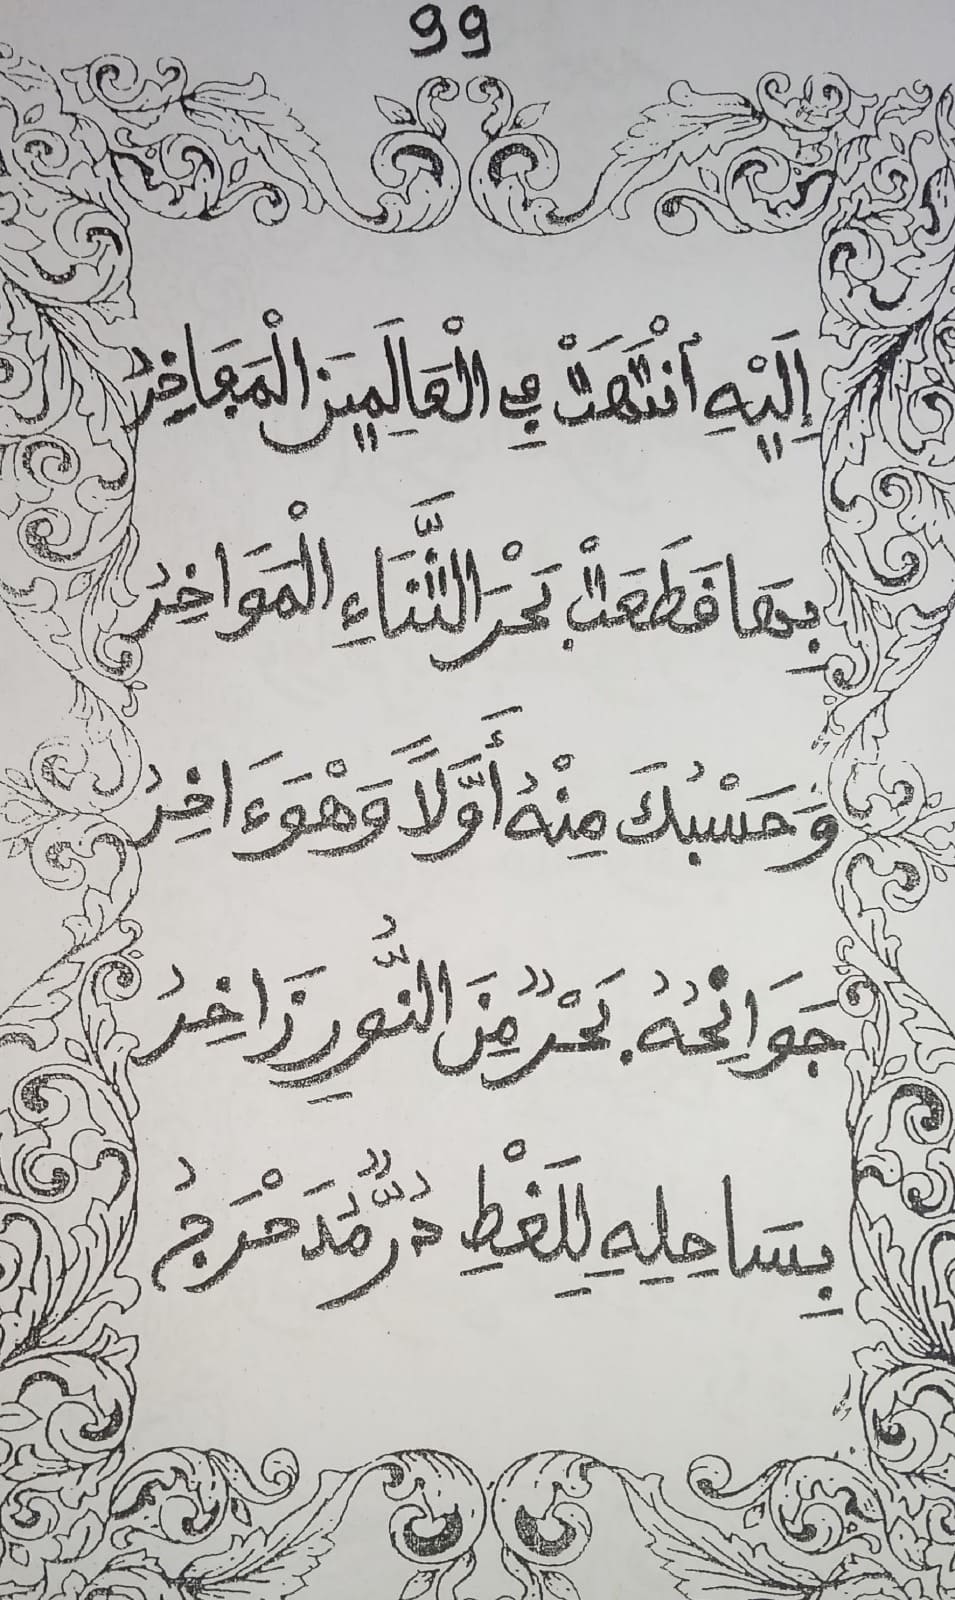 99
إِلَيْهِ انْتَهَتْ فِي الْعَالَمِينَ الْمَفَاخِرُ
بِهَا قَطَعَتْ بَحْرَ الثَّنَاءِ الْمَوَاخِرُ
وَحَسْبُكَ مِنْهُ أَوَّلًا وَهْوَ ءَاخِرُ
جَوَانِحُهُ بَحْرٌ مِنَ النُّورِ زَاخِرُ
بِسَاحِلِهِ لِلَّغْطِ دُرٌّ مُدَحْرَجُ